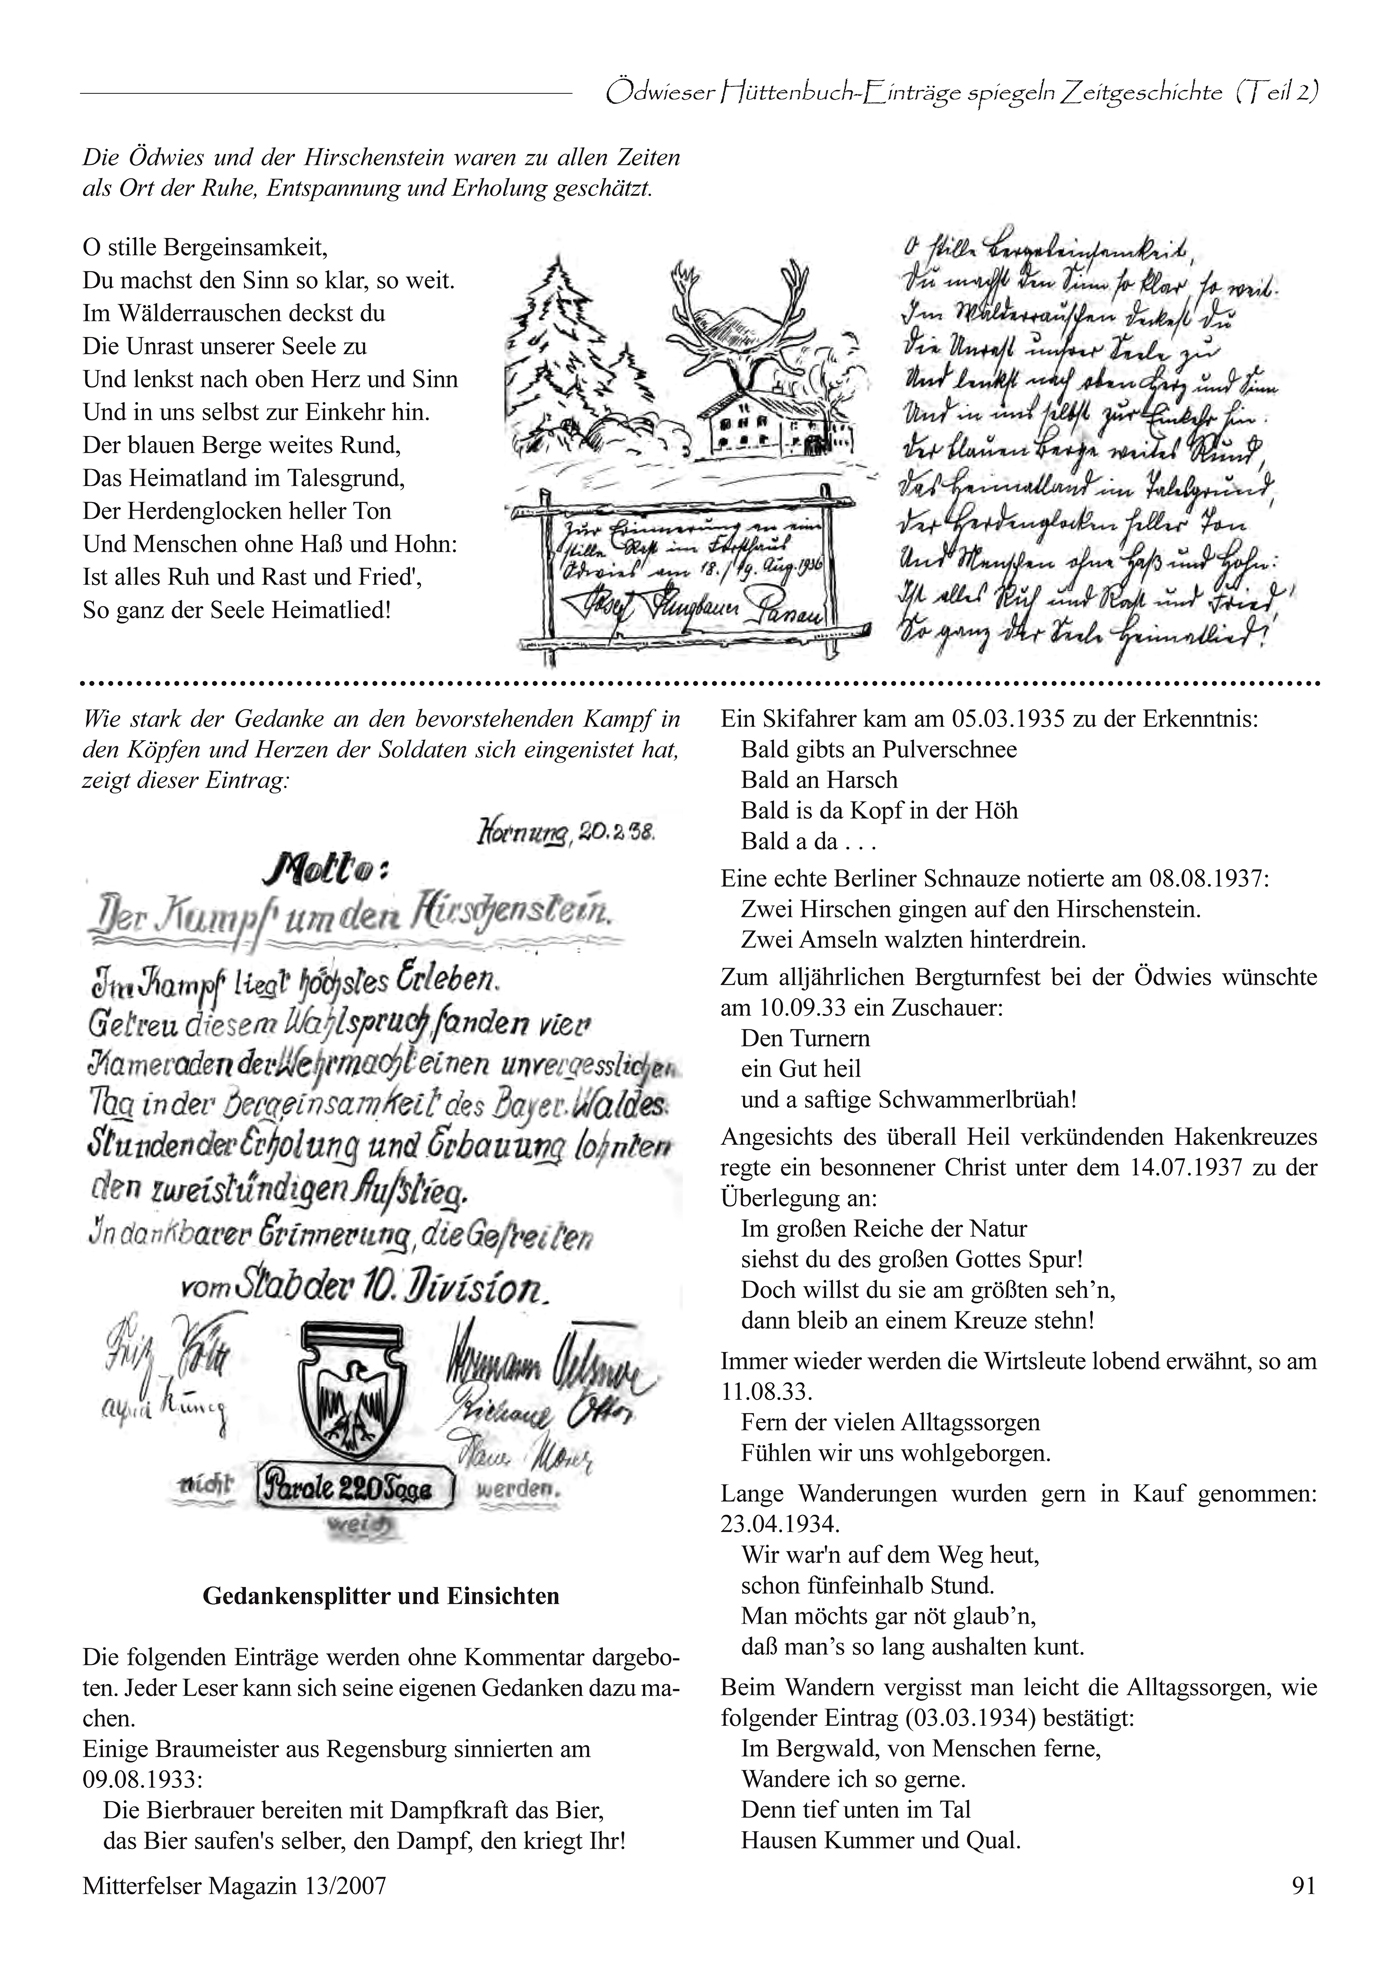 Ödwieser Hüttenbuch-Einträge spiegeln Zeitgeschichte (Teil 2)
Die Ödwies und der Hirschenstein waren zu allen Zeiten
als Ort der Ruhe, Entspannung und Erholung geschätzt.
O stille Bergeinsamkeit,
Du machst den Sinn so klar, so weit.
Im Wälderrauschen deckst du
Die Unrast unserer Seele zu
Und lenkst nach oben Herz und Sinn
Und in uns selbst zur Einkehr hin.
Der blauen Berge weites Rund,
Das Heimatland im Talesgrund,
Der Herdenglocken heller Ton
Und Menschen ohne Haß und Hohn:
Ist alles Ruh und Rast und Fried',
So ganz der Seele Heimatlied!
Zur Erinnerung an eine
stille Rast im Forsthaus
Ödwies am 18./19. Aug. 1936
Josef Jungbauer Passau
O stille Bergeinsamkeit,
Du machst den Sinn so klar, so weit.
Im Wälderrauschen deckest du
Die Unrast unsrer Seele zu
Und lenkst nach oben Herz und Sinn
Und in uns selbst zur Einkehr hin.
Der blauen Berge weites Rund,
Das Heimatland im Talesgrund,
Der Herdenglocken heller Ton
Und Menschen ohne Haß und Hohn:
Ist alles Ruh und Rast und Fried'
So ganz der Seele Heimatlied!
Wie stark der Gedanke an den bevorstehenden Kampf in
den Köpfen und Herzen der Soldaten sich eingenistet hat,
zeigt dieser Eintrag:
Hornung, 20.2.38.
Motto:
Der Kampf um den Hirschenstein.
Im Kampf liegt höchstes Erleben.
Getreu diesem Wahlspruch, fanden vier
Kameraden der Wehrmacht einen unvergesslichen
Tag in der Bergeinsamkeit des Bayer. Waldes.
Stunden der Erholung und Erbauung lohnten
den zweistündigen Aufstieg.
In dankbarer Erinnerung, die Gefreiten
vom Stab der 10. Division.
Fritz
Hermann
Otto
nicht Parole 220 Tage werden.
weich
Gedankensplitter und Einsichten
Die folgenden Einträge werden ohne Kommentar dargebo-
ten. Jeder Leser kann sich seine eigenen Gedanken dazu ma-
chen.
Einige Braumeister aus Regensburg sinnierten am
09.08.1933:
Die Bierbrauer bereiten mit Dampfkraft das Bier,
das Bier saufen's selber, den Dampf, den kriegt Ihr!
Ein Skifahrer kam am 05.03.1935 zu der Erkenntnis:
Bald gibts an Pulverschnee
Bald an Harsch
Bald is da Kopf in der Höh
Bald a da . . .
Eine echte Berliner Schnauze notierte am 08.08.1937:
Zwei Hirschen gingen auf den Hirschenstein.
Zwei Amseln walzten hinterdrein.
Zum alljährlichen Bergturnfest bei der Ödwies wünschte
am 10.09.33 ein Zuschauer:
Den Turnern
ein Gut heil
und a saftige Schwammerlbrüah!
Angesichts des überall Heil verkündenden Hakenkreuzes
regte ein besonnener Christ unter dem 14.07.1937 zu der
Überlegung an:
Im großen Reiche der Natur
siehst du des großen Gottes Spur!
Doch willst du sie am größten seh’n,
dann bleib an einem Kreuze stehn!
Immer wieder werden die Wirtsleute lobend erwähnt, so am
11.08.33.
Fern der vielen Alltagssorgen
Fühlen wir uns wohlgeborgen.
Lange Wanderungen wurden gern in Kauf genommen:
23.04.1934.
Wir war'n auf dem Weg heut,
schon fünfeinhalb Stund.
Man möchts gar nöt glaub’n,
daß man’s so lang aushalten kunt.
Beim Wandern vergisst man leicht die Alltagssorgen, wie
folgender Eintrag (03.03.1934) bestätigt:
Im Bergwald, von Menschen ferne,
Wandere ich so gerne.
Denn tief unten im Tal
Hausen Kummer und Qual.
Mitterfelser Magazin 13/2007
91